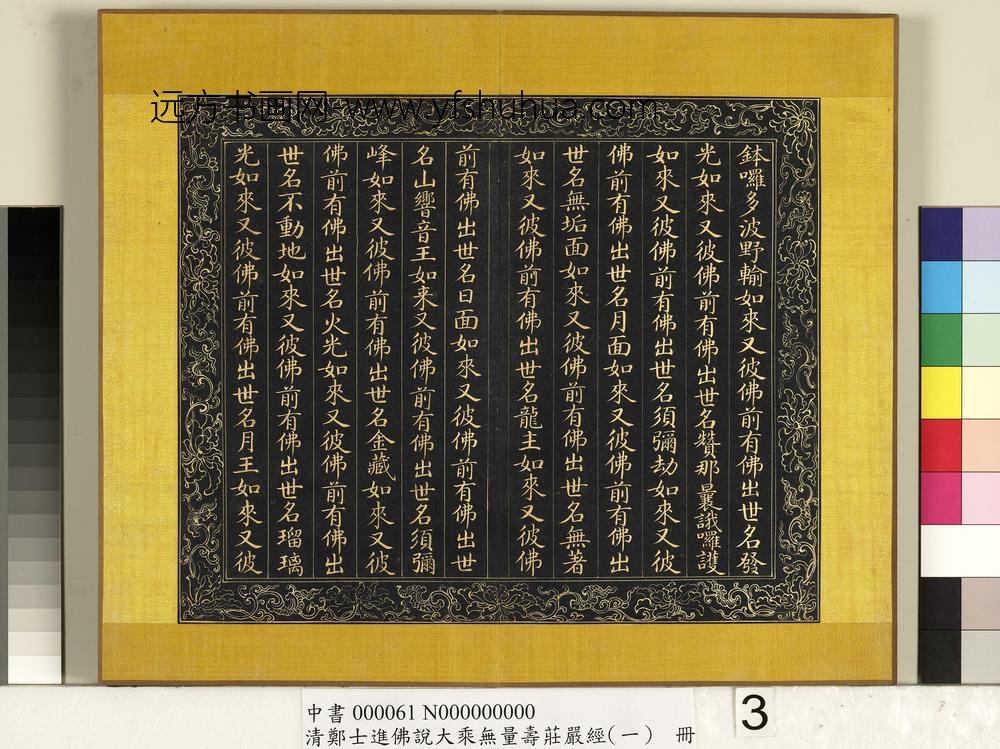 远方书画网-www.yfshuhua.com
鉢囉多波野輸如來又彼佛前有佛出世名發
光如來又彼佛前有佛出世名贊那曩誐囉護
如來又彼佛前有佛出世名須彌劫如來又彼
佛前有佛出世名月面如來又彼佛前有佛出
世名無垢面如來又彼佛前有佛出世名無著
如來又彼佛前有佛出世名龍主如來又彼佛
前有佛出世名日面如來又彼佛前有佛出世
名山響音王如來又彼佛前有佛出世名須彌
峰如來又彼佛前有佛出世名金藏如來又彼
佛前有佛出世名火光如來又彼佛前有佛出
世名不動地如來又彼佛前有佛出世名瑠璃
光如來又彼佛前有佛出世名月王如來又彼
中書 000061 N000000000
清鄭士進佛說大乘無量壽莊嚴經(一) 冊
3